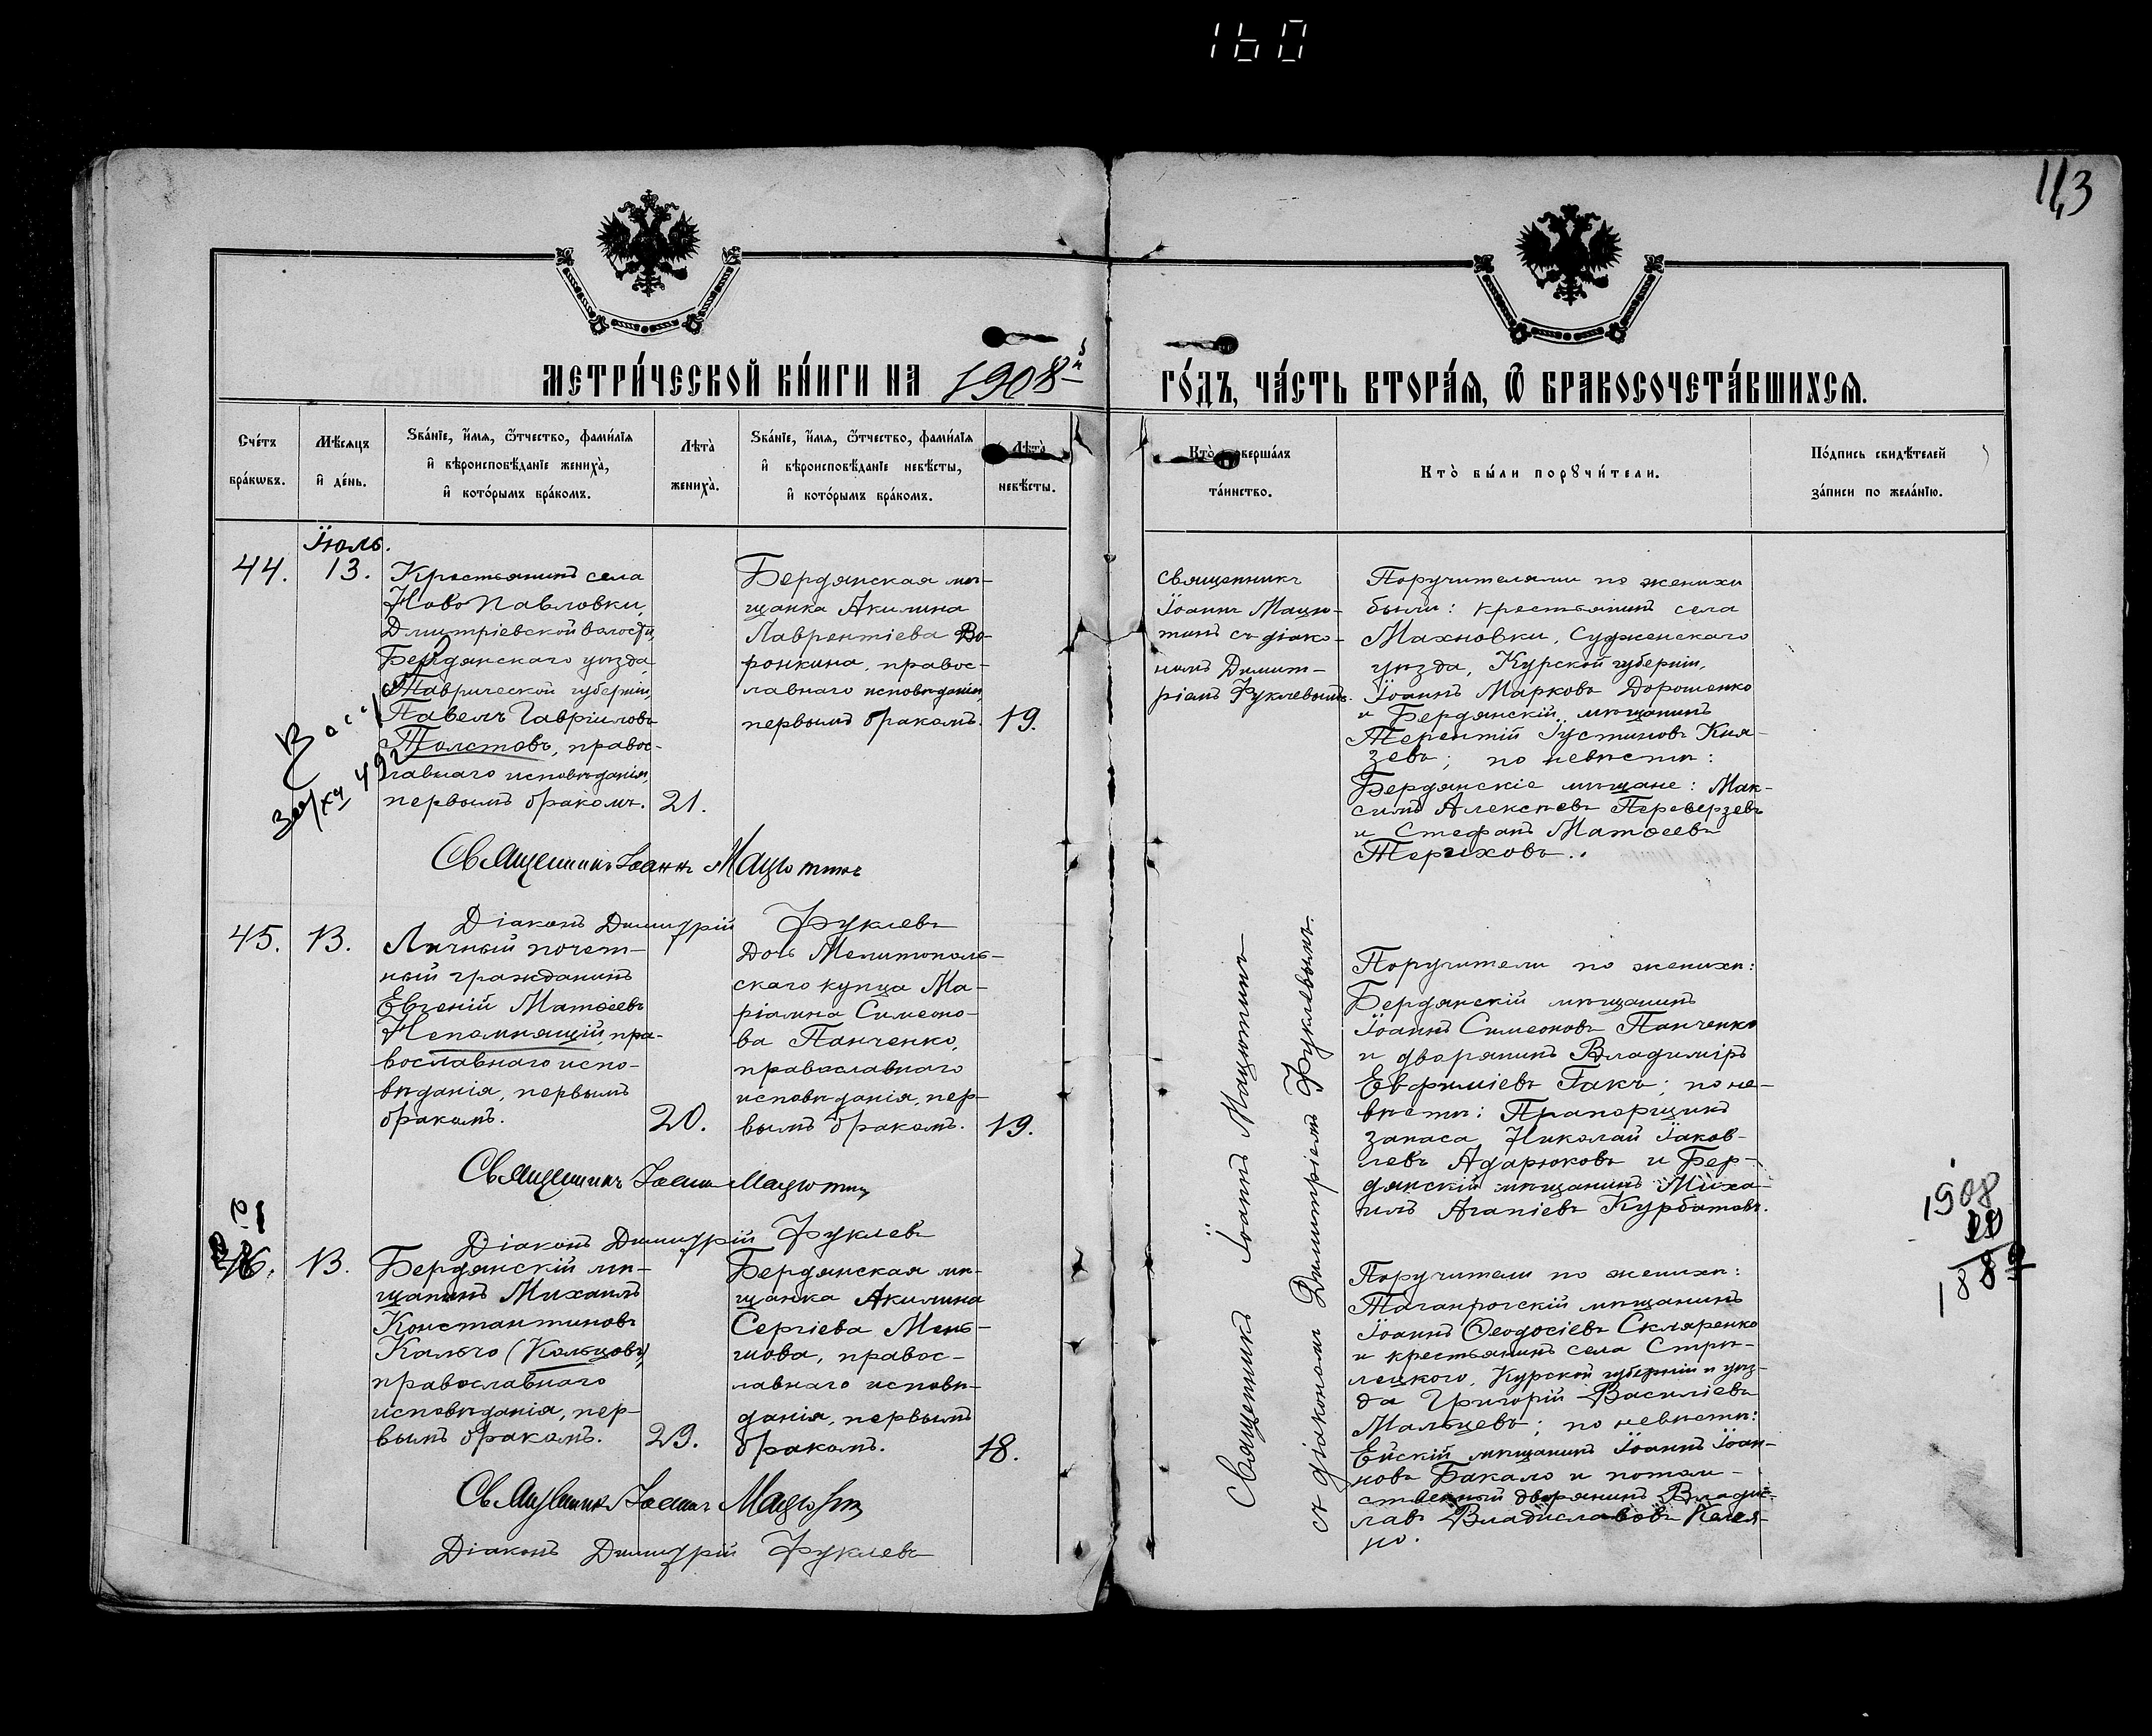 160
113
МЕТРИ́ЧЕСКОЙ КНИ́ГИ НА 1908й
ГО́ДЪ, ЧА́СТЬ ВТОРА́Я, Ѿ БРАКОСОЧЕТА́ВШИХСЯ.
Сче́тъ
бра́кѡвъ.
Мѣ́сяцъ
и҆ де́нь.
Ѕва́нїе, и҆́мя, ѻ҆́тчество, фами́лїя
и҆ вѣроисповѣ́данїе жениха̀,
и҆ кото́рымъ бра́комъ.
Лѣта̀
жениха̀.
Ѕва́нїе, и҆́мя, ѻ҆́тчество, фами́лїя
и҆ вѣроисповѣ́данїе невѣ́сты,
и҆ кото́рымъ бра́комъ.
Лѣта̀
невѣ́сты.
Кто̀ соверша́лъ
та́инство.
Кто̀ бы́ли порꙋчи́тели.
По́дпись свидѣ́телей
за́писи по жела́нїю.
Іюль.
44.
13.
Крестьянинъ села
Ново Павловки,
Дмитріевской волости,
Бердянскаго уѣзда,
Таврической губерніи,
Павелъ Гавріиловъ
Толстовъ, правос-
лавнаго исповѣданія,
первымъ бракомъ.
21.
Бердянская мѣ-
щанка Акилина
Лаврентіева Во-
ронкина, правос-
лавнаго исповѣданія,
первымъ бракомъ.
19.
Священникъ
Іоаннъ Мацю-
тинъ съ діако-
номъ Димит-
ріемъ Фуклевымъ.
Поручителями по женихѣ
были: крестьянинъ села
Махновки, Суджескаго
уѣзда, Курской губерніи,
Іоаннъ Марковъ Дорошенко
и Бердянскій мѣщанинъ
Терентій Іустиновъ Кня-
зевъ; по невѣстѣ:
Бердянскіе мѣщане: Мак-
симъ Алексѣевъ Переверзевъ
и Стефанъ Матѳеевъ
Териховъ.
Священникъ Іоаннъ Мацютинъ
Діаконъ Димитрій Фуклевъ
45.
13.
Личный почет-
ный гражданинъ
Евгеній Матѳіевъ
Непомнящій, пра-
вославнаго испо-
вѣданія, первымъ
бракомъ.
20.
Дочь Мелитополь-
скаго купца Ма-
ріамна Симеоно-
ва Панченко,
православнаго
исповѣданія, пер-
вымъ бракомъ.
19.
Священникъ Іоаннъ Мацютинъ
съ діакономъ Димитріемъ Фуклевымъ.
Поручители по женихѣ:
Бердянскій мѣщанинъ
Іоаннъ Симеоновъ Панченко
и дворянинъ Владиміръ
Евфиміевъ Гакъ; по не-
вѣстѣ: Прапорщикъ
запаса Николай Іаков-
левъ Адарюковъ и Бер-
дянскій мѣщанинъ Миха-
илъ Агапіевъ Курбатовъ.
Священникъ Іоаннъ Мацютинъ
Діаконъ Димитрій Фуклевъ
46.
13.
Бердянскій мѣ-
щанинъ Михаилъ
Константиновъ
Кальчо (Кольцовъ),
православнаго
исповѣданія, пер-
вымъ бракомъ.
29.
Бердянская мѣ-
щанка Акилина
Сергіева Мень-
шова, правос-
лавнаго исповѣ-
данія, первымъ
бракомъ.
18.
Поручители по женихѣ:
Таганрогскій мѣщанинъ
Іоаннъ Ѳеодосіевъ Скляренко
и крестьянинъ села Стрѣ-
лецкого, Курской губерніи и уѣз-
да Григорій Василіевъ
Мальцевъ; по невѣстѣ:
Ейскій мѣщанинъ Іоаннъ Іоан-
новъ Бакало и потом-
ственный дворянинъ Владис-
лавъ Владиславовъ
Священникъ Іоаннъ Мацютинъ
Діаконъ Димитрій Фуклевъ
1908
20
188